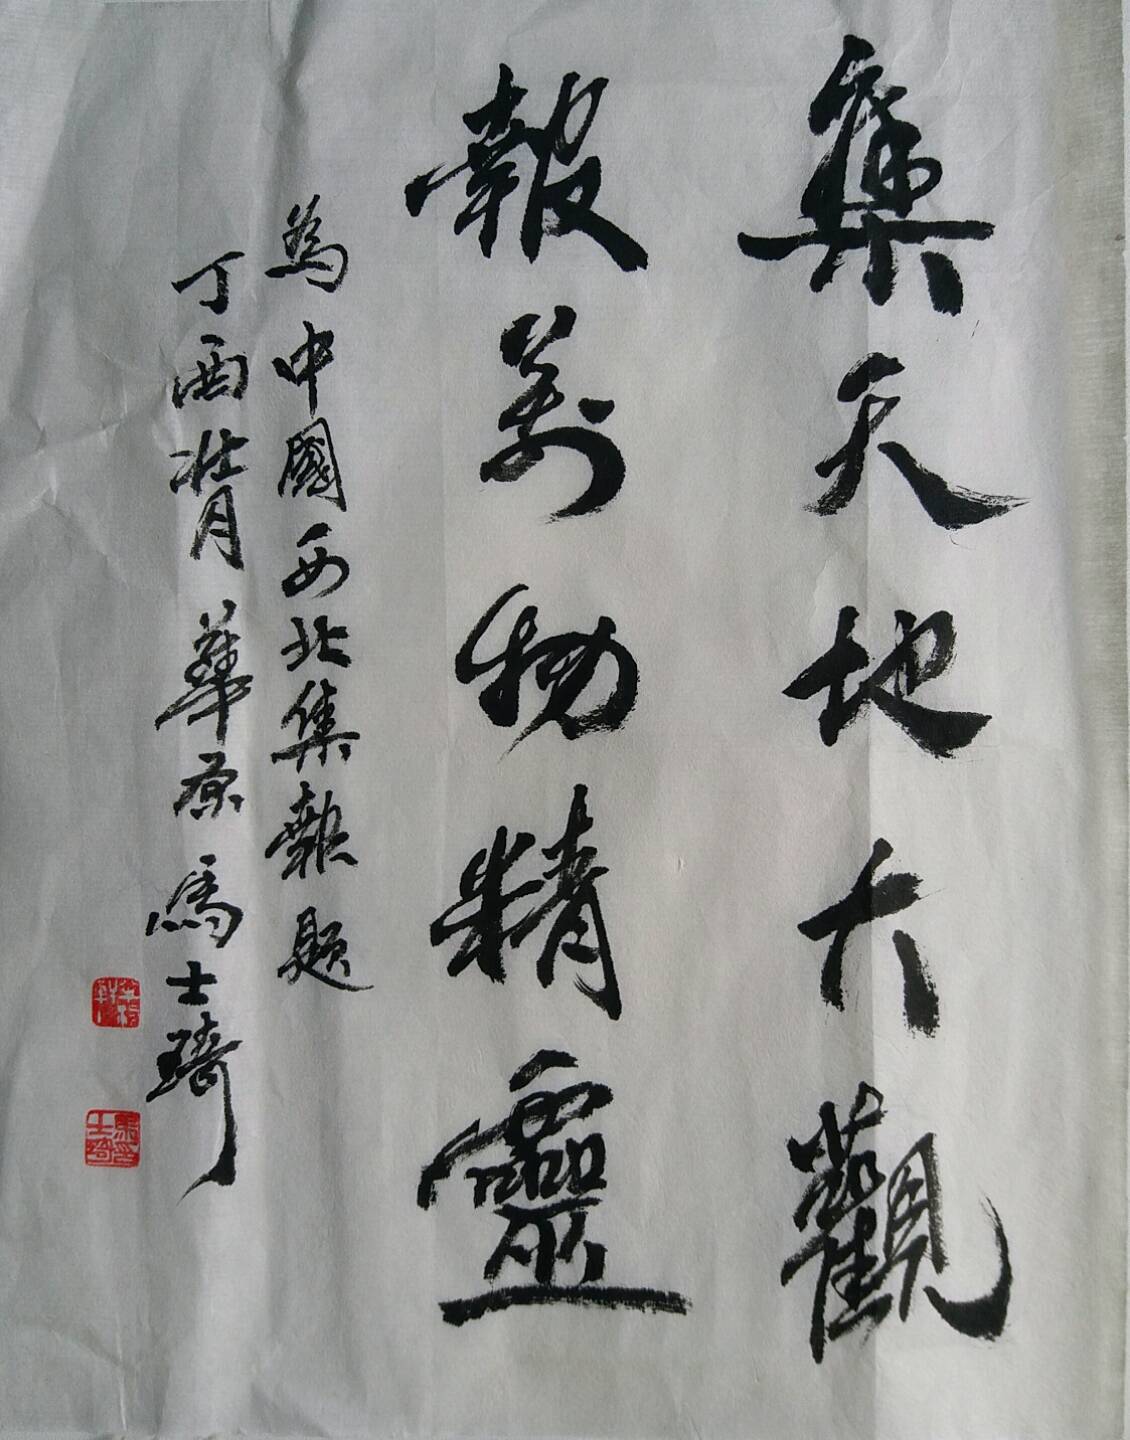 集天地大觀
報萬物精靈
為中國西北集報題
丁酉壯月華原馬士琦
馬士琦印